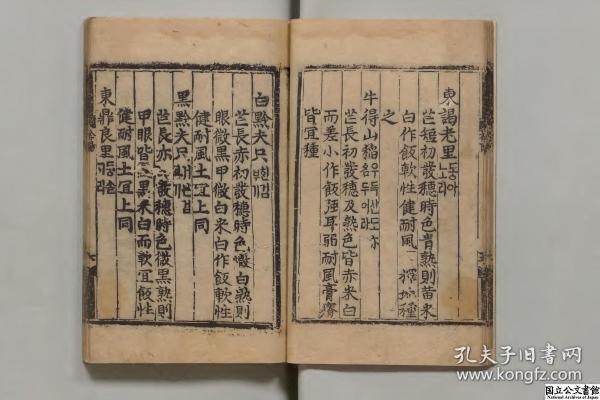 東謁老里동아노리
芒短初發穗時色青熟則苗米
白作飯軟性健耐風 擇地種
之
牛得山稻
芒長初發穗及熟色皆赤米白
而麁小作飯強耳弱耐風膏瘠
皆宜種
白黔夫只
芒長亦初發穗時色微白熟則
眼微黑甲微白米白作飯軟性
健耐風土宜上同
黑黔夫只
芒長亦 發穗時色微黑熟則
甲眼皆黑米白而軟宜飯性
健耐風土宜上同
東鼎艮里
孔夫子旧书网
www.kongfz.com
国立公文書館
National Archives of Japan